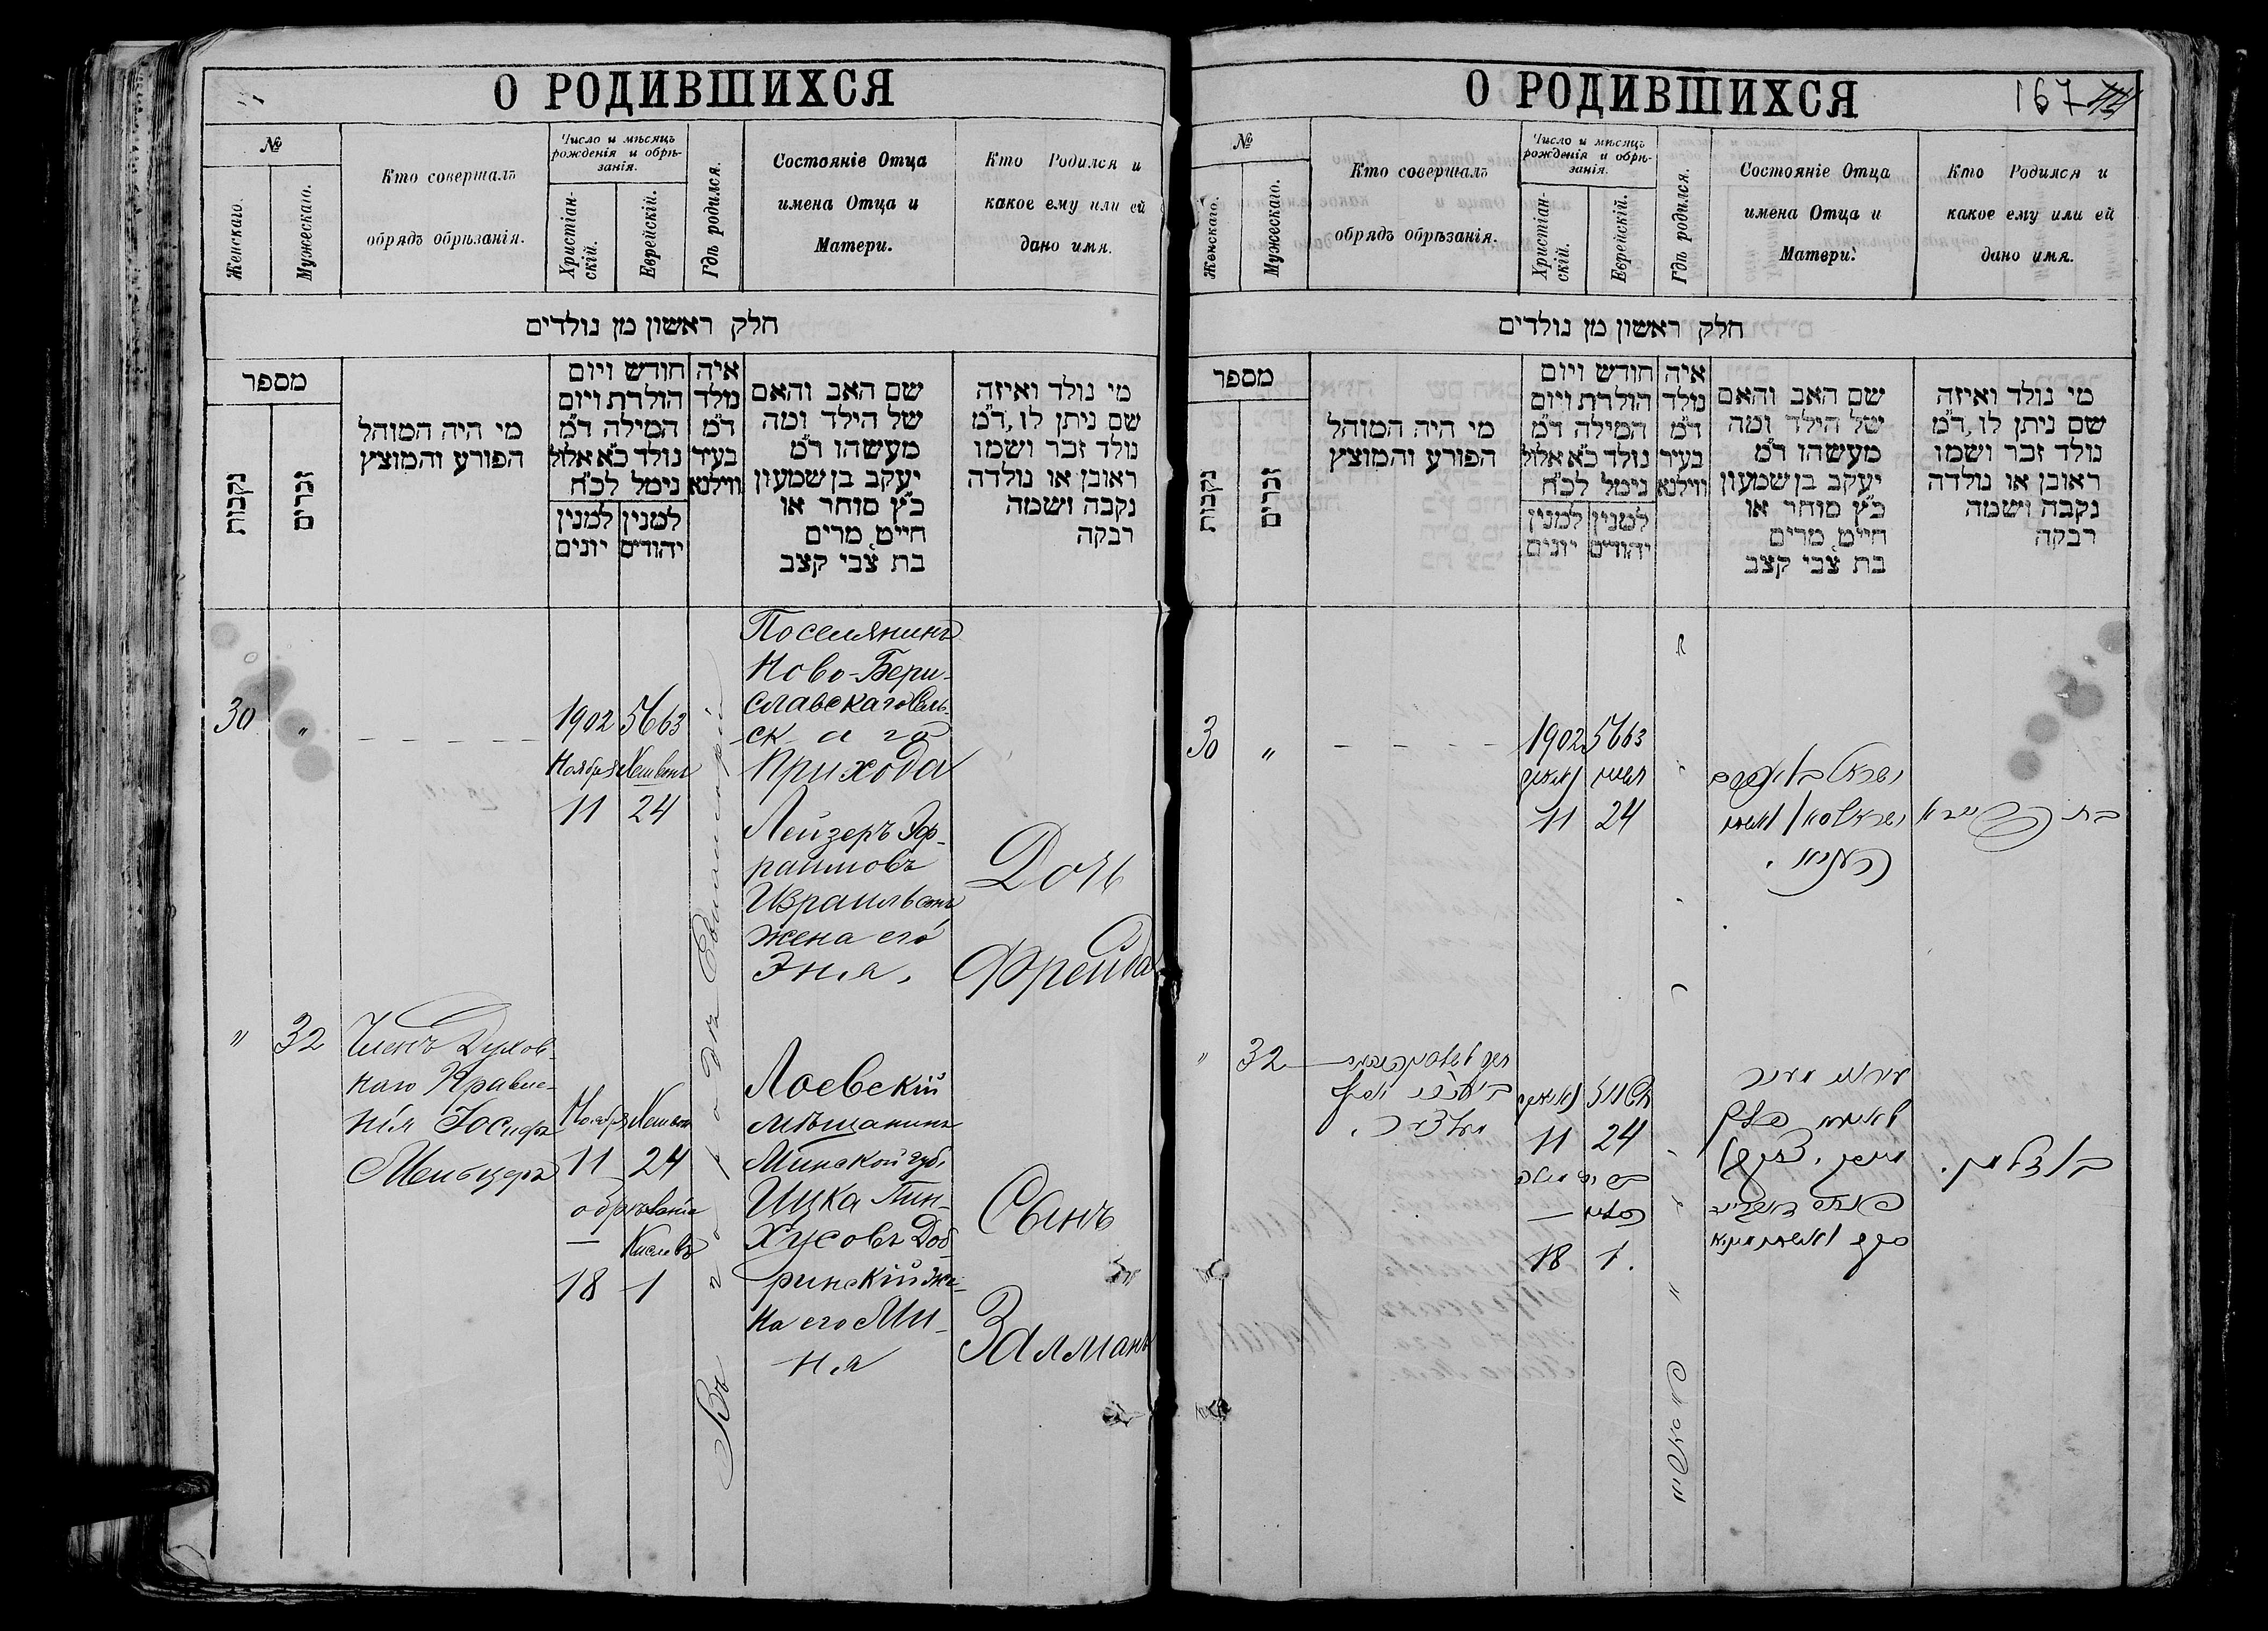 О РОДИВШИХСЯ
№
Женскаго.
Мужескаго.
Кто совершалъ
обрядъ обрѣзанія.
Число и мѣсяцъ
рожденія и обрѣ-
занія.
Христіан-
скій.
Еврейскій.
Гдѣ родился.
Состояніе Отца
имена Отца и
Матери.
Кто Родился и
какое ему или ей
дано имя.
חלק ראשון מן נולדים
מספר
נקבות
זכרים
מי היה המוהל
הפורע והמוצץ
חודש ויום
הולדת ויום
המילה ד״מ
נולד כ״א אלול
נימל לכ״ח
למנין יונים
למנין יהודים
איה
נולד
ד״מ
בעיר
ווילנא
שם האב והאם
של הילד ומה
מעשהו ד״מ
יעקב בן שמעון
כ״ץ סוחר או
חייט, מרים
בת צבי קצב
מי נולד ואיזה
שם ניתן לו, ד״מ
נולד זכר ושמו
ראובן או נולדה
נקבה ושמה
רבקה
30
"
1902
Ноября
11
5663
Хешвонъ
24
Въ городѣ Евпаторіи
Поселянинъ
Ново-Бери-
славскаго Сель-
скаго
Прихода
Лейзеръ Эф-
раимовъ
Израильсонъ
жена его
Эня.
Дочь
Фрейда
"
32
Членъ Духов-
наго Правле-
нія Іосифъ
Мельцеръ
Ноября
11
Хешвон
24
обрѣзанія
—
18
Кислевъ
1
Лоевскій
мѣщанинъ
Минской губ.
Ицка Пин-
хусовъ Доб-
ринскій же-
на его Ми-
ня
Сынъ
Залманъ
О РОДИВШИХСЯ
167
№
Женскаго.
Мужескаго.
Кто совершалъ
обрядъ обрѣзанія.
Число и мѣсяцъ
рожденія и обрѣ-
занія.
Христіан-
скій.
Еврейскій.
Гдѣ родился.
Состояніе Отца
имена Отца и
Матери.
Кто Родился и
какое ему или ей
дано имя.
חלק ראשון מן נולדים
מספר
נקבות
זכרים
מי היה המוהל
הפורע והמוצץ
חודש ויום
הולדת ויום
המילה ד״מ
נולד כ״א אלול
נימל לכ״ח
למנין יונים
למנין יהודים
איה
נולד
ד״מ
בעיר
ווילנא
שם האב והאם
של הילד ומה
מעשהו ד״מ
יעקב בן שמעון
כ״ץ סוחר או
חייט, מרים
בת צבי קצב
מי נולד ואיזה
שם ניתן לו, ד״מ
נולד זכר ושמו
ראובן או נולדה
נקבה ושמה
רבקה
30
"
1902
11
5663
24
"
32
11
24
—
18
1.
בן זלמן.